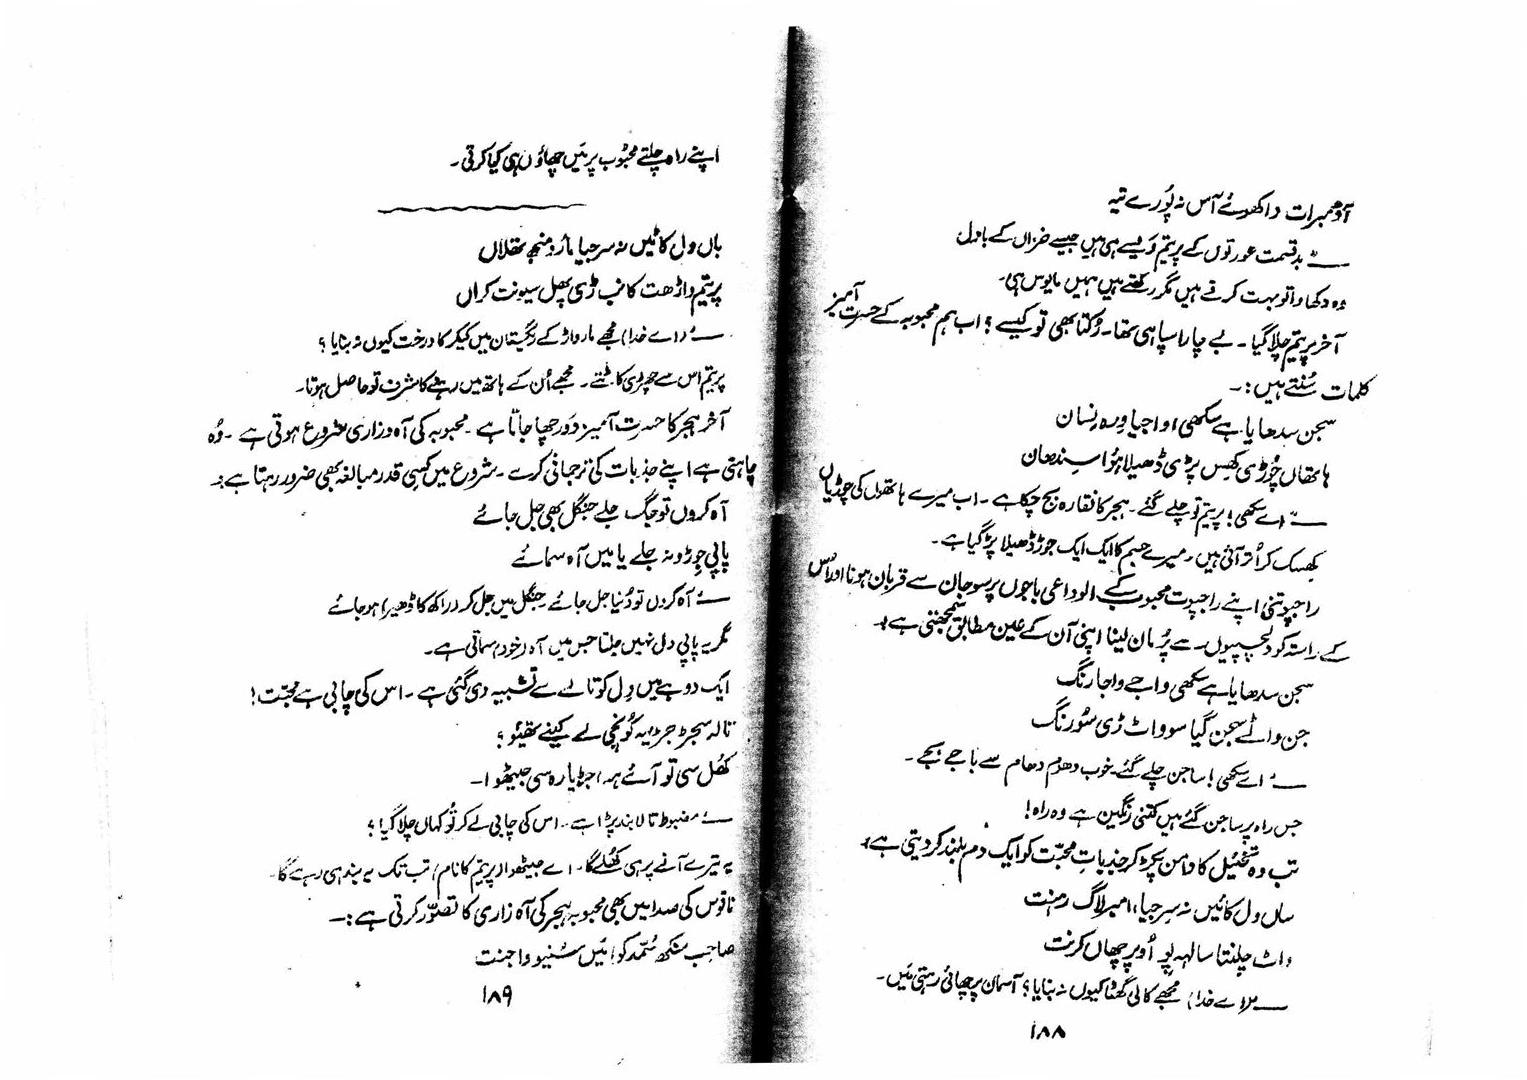 آڈمبرات داکھوئے آس نہ پُورے تیہ
— "بدقسمت عورتوں کے پریتم وَیسے ہی ہیں جیسے خزاں کے بادل
وُہ دکھاوا تو بہت کرتے ہیں مگر رکھتے ہیں ہمیں مایوس ہی۔
آخر پریتم چلا گیا۔ بے چارا سپاہی تھا۔ رُکتا بھی تو کیسے؟ اب ہم محبوبہ کے حسرت آمیز
کلمات سُنتے ہیں:۔
سجن سدھایا ہے سکھی اواجیا وِرہ نِسان
ہاتھاں چُوڑی کھِس پڑی ڈھیلا ہُوا سندھان
— "اے سکھی! پریتم تو چلے گئے۔ ہجر کا نقارہ بج چکا ہے۔ اب میرے ہاتھوں کی چوڑیاں
کھِسک کر اُتر آئی ہیں۔ میرے جسم کا ایک ایک جوڑ ڈھیلا پڑ گیا ہے۔
راجپوتنی اپنے راجپوت محبوب کے الوداعی باجوں پر سو جان سے قربان ہونا اور اُس
کے راستہ کو دلچسپیوں سے پُر مان لینا اپنی آن کے عین مطابق سمجھتی ہے۔
سجن سدھایا ہے سکھی واجے واجا رنگ
جن والے سجن گیا سو واٹ ڑی سُورنگ
— "اے سکھی! ساجن چلے گئے۔ خوب دھوم دھام سے باجے بجے۔
جس راہ پر ساجن گئے ہیں کتنی رنگین ہے وہ راہ!
تب وہ تخیّل کا دامن پکڑ کر جذباتِ محبّت کو ایک دم بلند کر دیتی ہے۔
ساں ول کائیں نہ سرجیا، امبر لاگ رہنت
واٹ چلنتا سالہہ پُو اُوپر چھاں کرنت
— "اے خدا! مجھے کالی گھٹا کیوں نہ بنایا؟ آسمان پر چھائی رہتی مَیں۔
۱۸۸
اپنے راہ چلتے محبُوب پر مَیں چھاؤں ہی کیا کرتی۔
باں ول کائیں نہ سرجیا مارُو منجھ تھلاں
پریتم واڑھت کانب ڑی پھل سیونت کراں
— "(اے خدا) مجھے مارواڑ کے ریگستان میں کیکر کا درخت کیوں نہ بنایا؟
پریتم اس سے چھڑی کاٹتے۔ مجھے اُن کے ہاتھ میں رہنے کا شرف تو حاصل ہوتا۔
آخر ہجر کا حسرت آمیز دَور چھا جاتا ہے۔ محبوبہ کی آہ وزاری شروع ہوتی ہے۔ وُہ
چاہتی ہے اپنے جذبات کی ترجمانی کرے۔ شروع میں کسی قدر مبالغہ بھی ضرور رہتا ہے:۔
آہ کروں تو جگ جلے جنگل بھی جل جائے
پاپی جِوڑو نہ جلے یا میں آہ سمائے
— "آہ کروں تو دُنیا جل جائے جنگل میں جل کر راکھ کا ڈھیر ہو جائے
مگر یہ پاپی دل نہیں جلتا جس میں آہ (خود) سماتی ہے۔
ایک دوہے میں دِل کو تالے سے تشبیہ دی گئی ہے۔ اس کی چابی ہے محبّت!
تالہ سجڑ جڑیہ کُونچی لے کینے تھیئو؟
کھُل سی تو آئے ہہ اجڑیا رہ سی جیٹھوا۔
— "مضبوط تالا بند پڑا ہے۔ اس کی چابی لے کر تُو کہاں چلا گیا؟
یہ تیرے آنے پر ہی کھُلے گا۔ اے جیٹھوا (پریتم کا نام) تب تک یہ بند ہی رہے گا۔
ناقوس کی صدا میں بھی محبوبہ ہجر کی آہ زاری کا تصوّر کرتی ہے:۔
صاحب سنکھ سُمّد کو مَیں سُنیو واجنت
۱۸۹